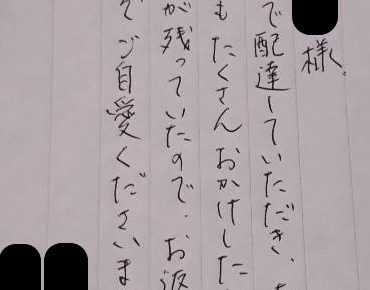 様
で配達していただき、
もたくさんおかけした
が残っていたので、お返
ご自愛くださいま